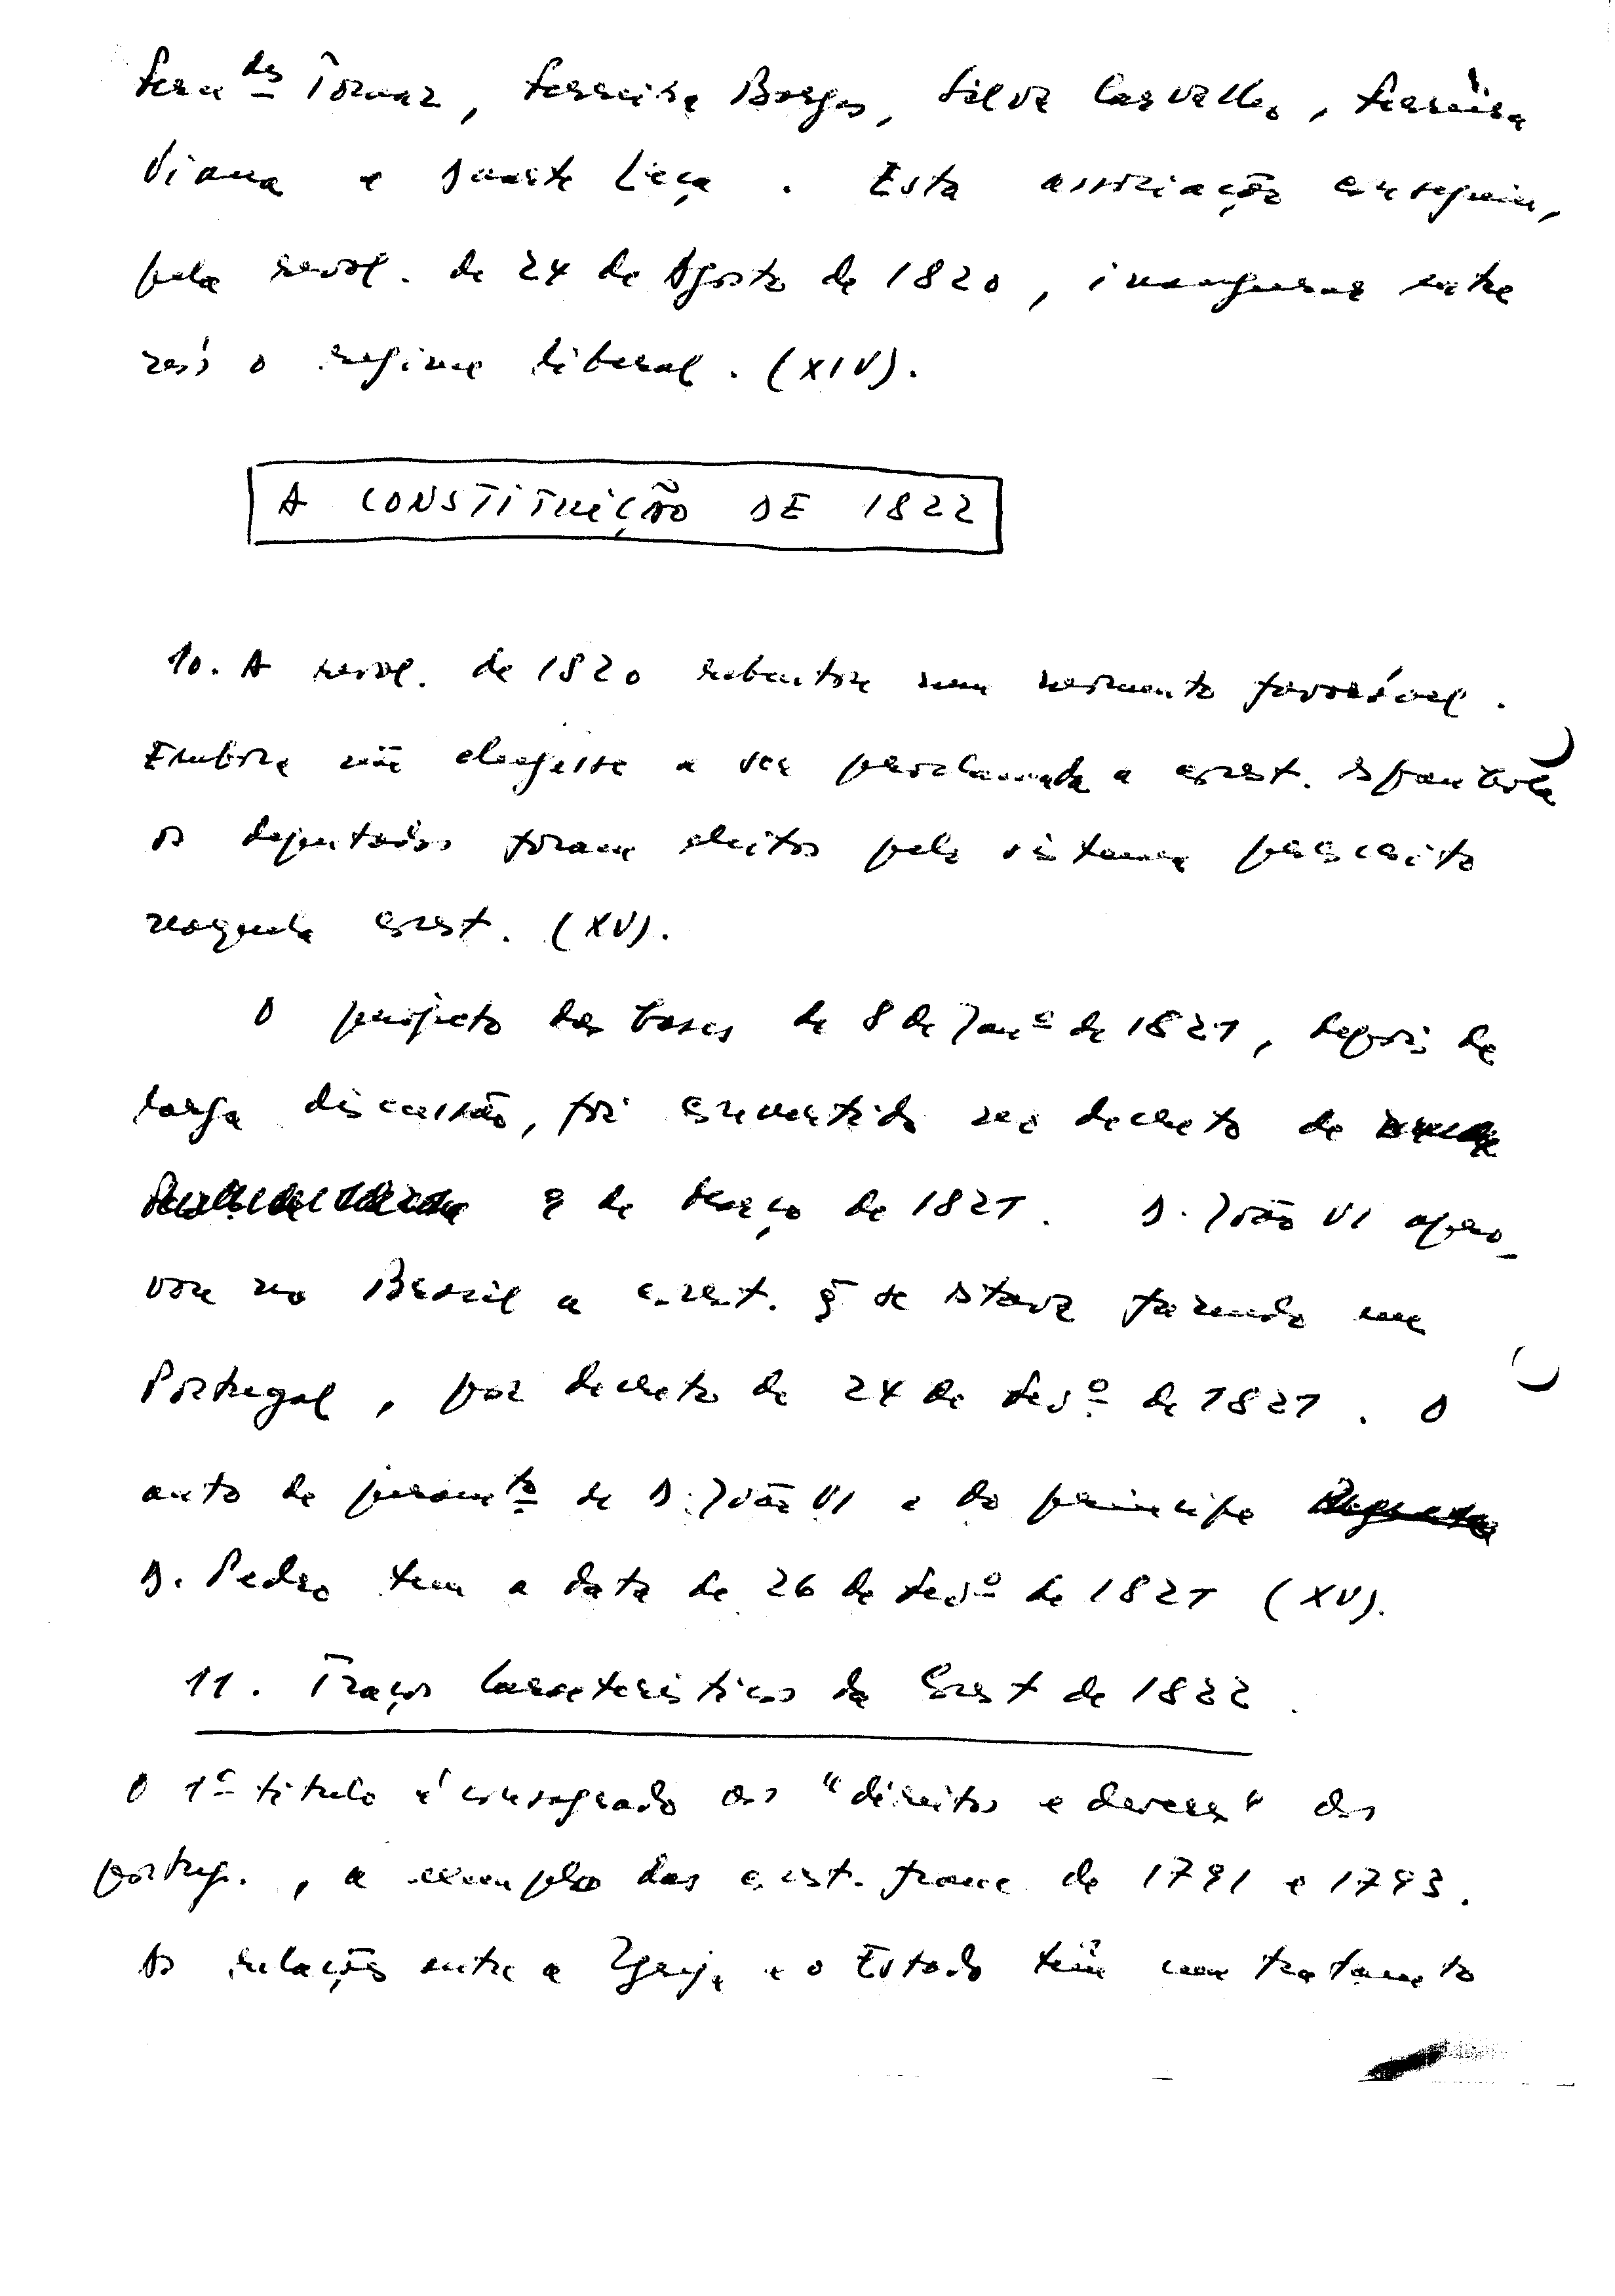 Fern.des Tomaz, Ferreira Borges, Silva Carvalho, Ferreira
Viana e Duarte Leça. Esta associação conseguiu,
pela revol. de 24 de Agosto de 1820, inaugurar entre
nós o regime liberal. (XIV).
A CONSTITUIÇÃO DE 1822
10. A revol. de 1820 rebentou num momento favorável.
Embora não chegasse a ser proclamada a const. espanhola
os deputados foram eleitos pelo sistema prescrito
naquela const. (XV).
O projecto das bases de 8 de Janº de 1821, depois de
larga discussão, foi convertido no decreto de
9 de Março de 1821. D. João VI apro-
vou no Brasil a const. q̃ se estava fazendo em
Portugal, por decreto de 24 de Fevº de 1821. O
auto de juramto de D. João VI e do príncipe
D. Pedro tem a data de 26 de Fevº de 1821 (XV).
11. Traços Característicos da Const de 1822.
O 1º título é consagrado aos "direitos e deveres" dos
portug., a exemplo das const. franc. de 1791 e 1793.
As relações entre a Igreja e o Estado têm um tratamento